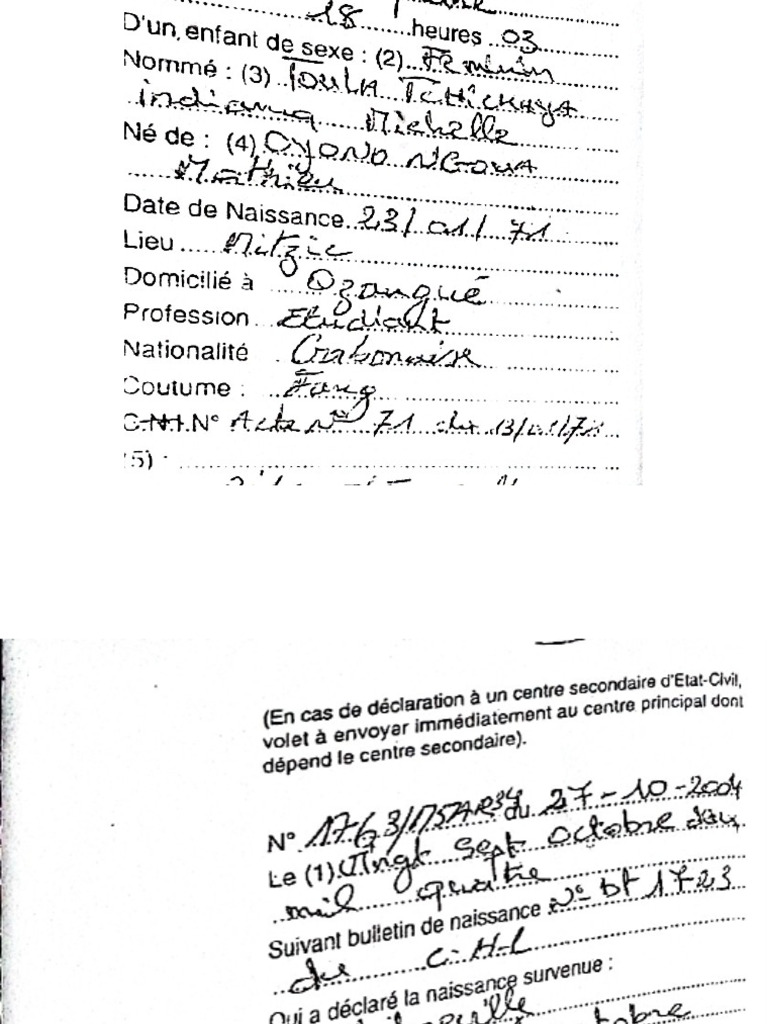 18 heures 03
D'un enfant de sexe : (2) Féminin
Nommé : (3) TOULA TCHICKAYA
indianna Michelle
Né de : (4) OYONO NGOUA
Mathieu
Date de Naissance 23/01/71
Lieu Mitzic
Domicilié à Ozangué
Profession Etudiant
Nationalité Gabonaise
Coutume : Fang
C.N.I. N° Acte N° 71 du
(5) :
(En cas de déclaration à un centre secondaire d'Etat-Civil,
volet à envoyer immédiatement au centre principal dont
dépend le centre secondaire).
N° du 27-10-2004
Le (1) Vingt sept octobre deux
mil quatre
Suivant bulletin de naissance N° bt 1723
du C.H.L
Qui a déclaré la naissance survenue :
octobre